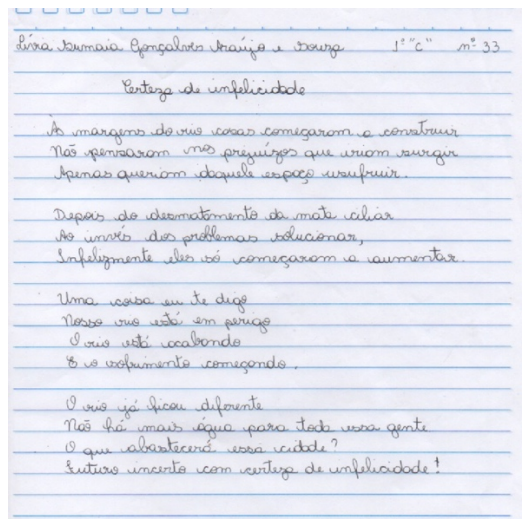 Lívia Sumaia Gonçalves Araújo e Souza 1º "C" nº 33
Certeza de infelicidade
Às margens do rio casas começaram a construir
Não pensaram nos prejuízos que iriam surgir
Apenas queriam daquele espaço usufruir.
Depois do desmatamento da mata ciliar
Ao invés dos problemas solucionar,
Infelizmente eles só começaram a aumentar.
Uma coisa eu te digo
Nosso rio está em perigo
O rio está acabando
E o sofrimento começando.
O rio já ficou diferente
Não há mais água para toda essa gente
O que abastecerá essa cidade?
Futuro incerto com certeza de infelicidade!